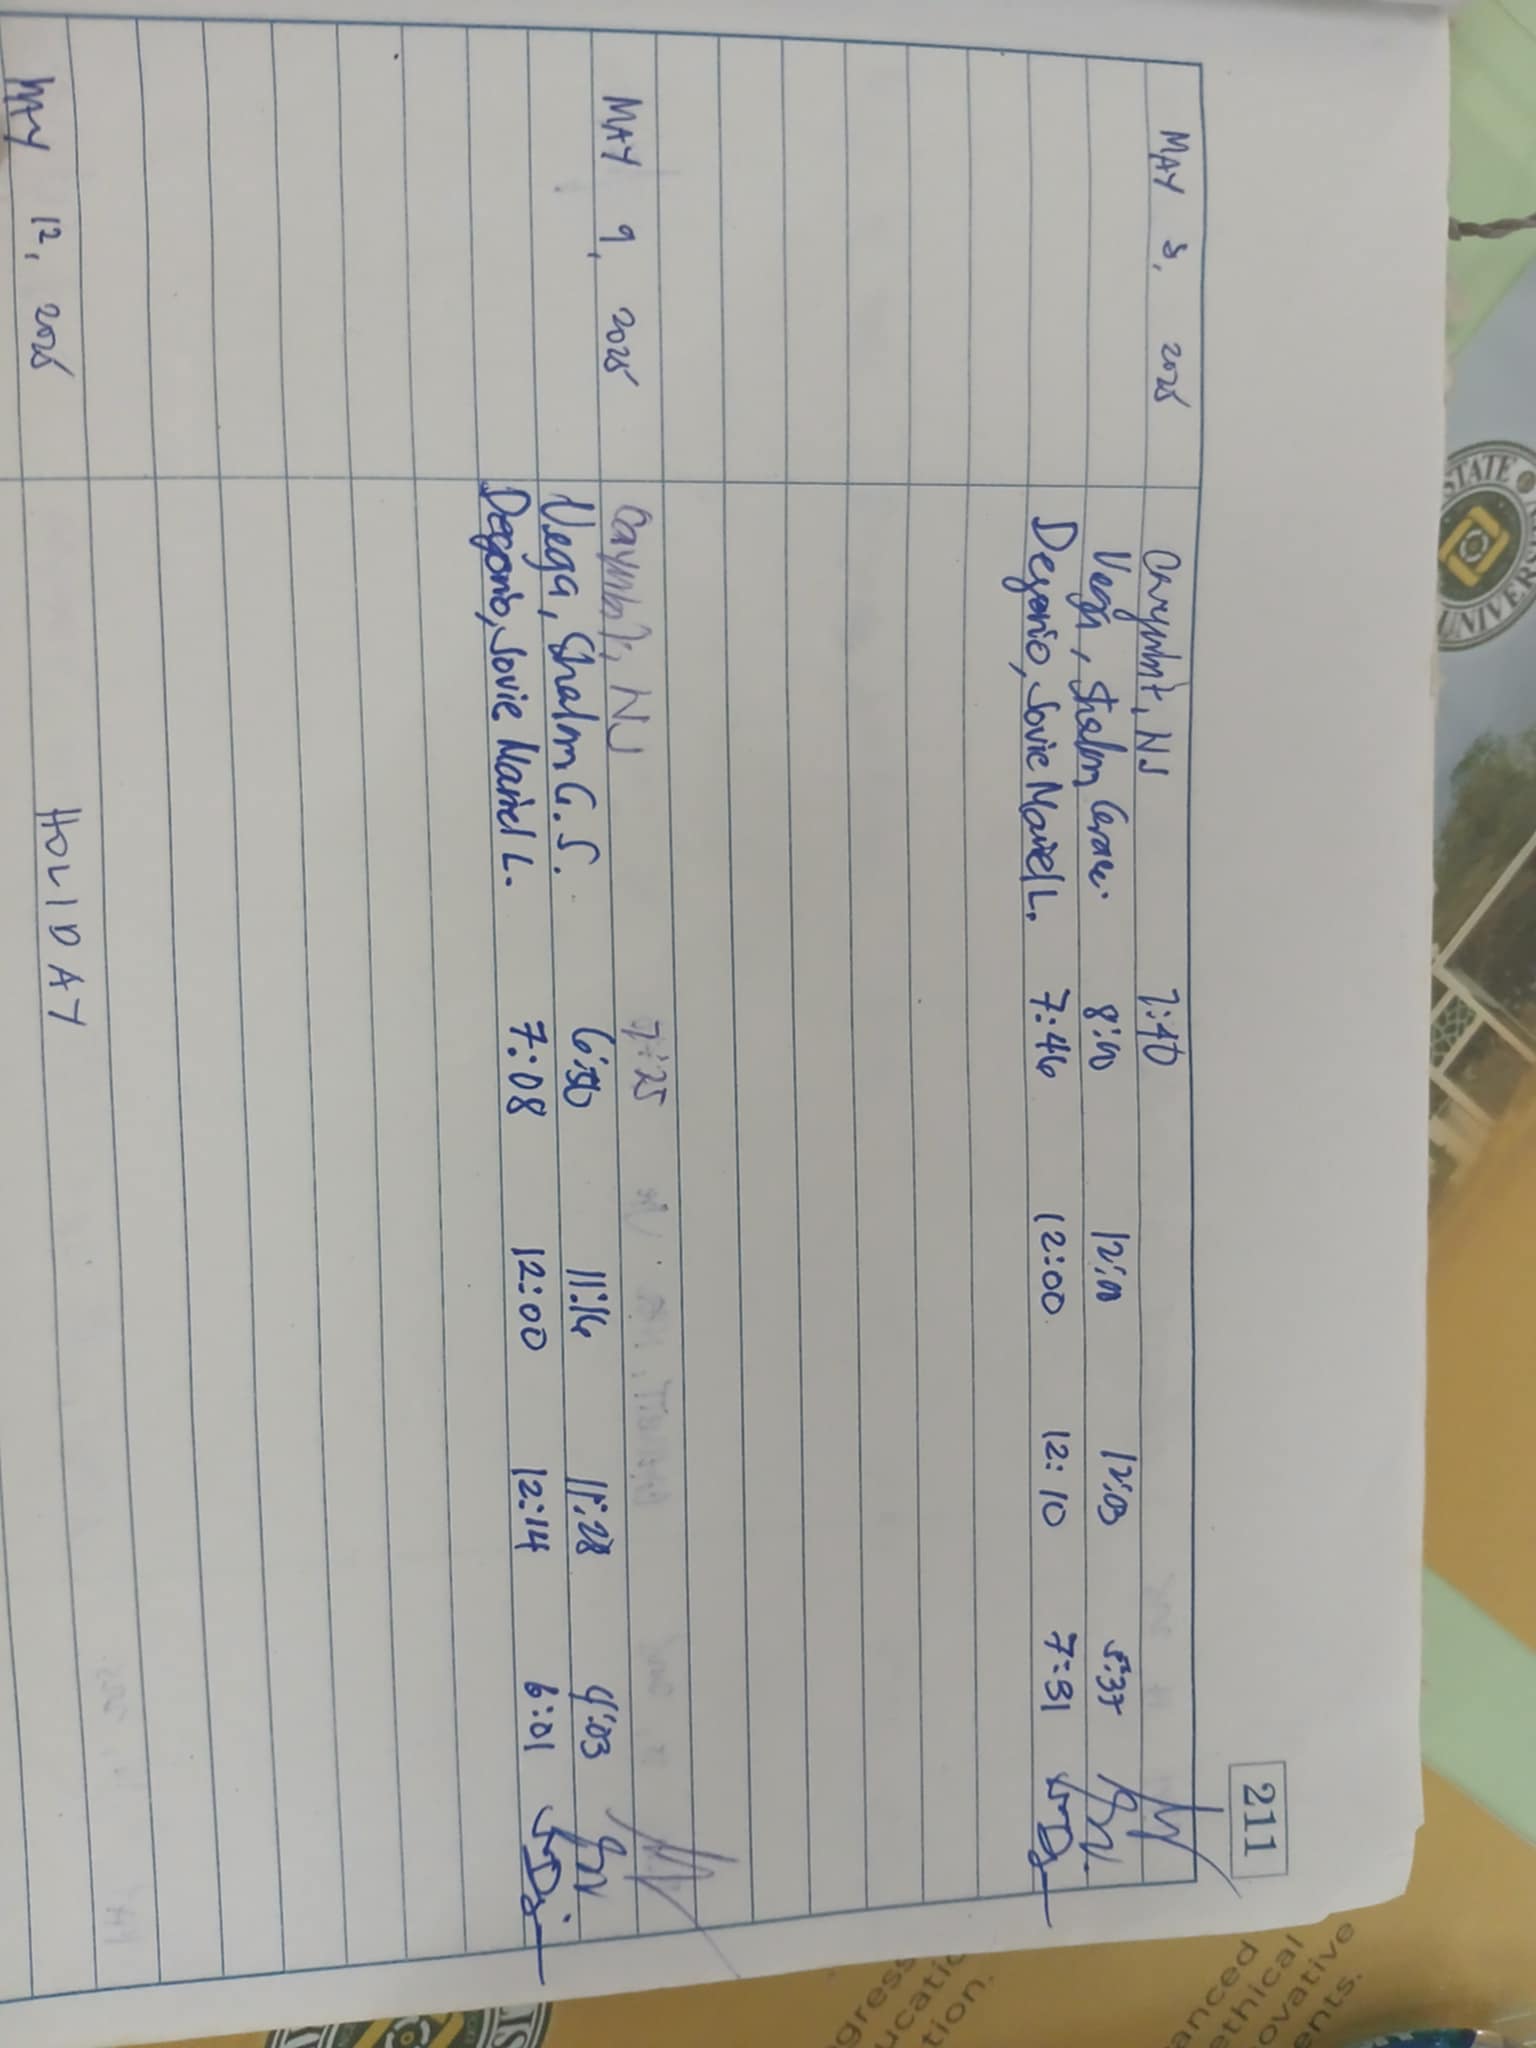 211
MAY 8, 2025 NJ 7:40
Vega, Shalom Grace 8:00 12:00 12:03 5:37
Deyorio, Jovie Mariel L. 7:46 12:00 12:10 7:31
MAY 9, 2025 NJ 7:25
Vega, Shalom G. S. 6:50 11:16 11:28 4:03
Deyorio, Jovie Mariel L. 7:08 12:00 12:14 6:01
MAY 12, 2025 HOLIDAY
STATE
UNIVERS
anced
ethical
ovative
ents.
gress
ucatio
tion.